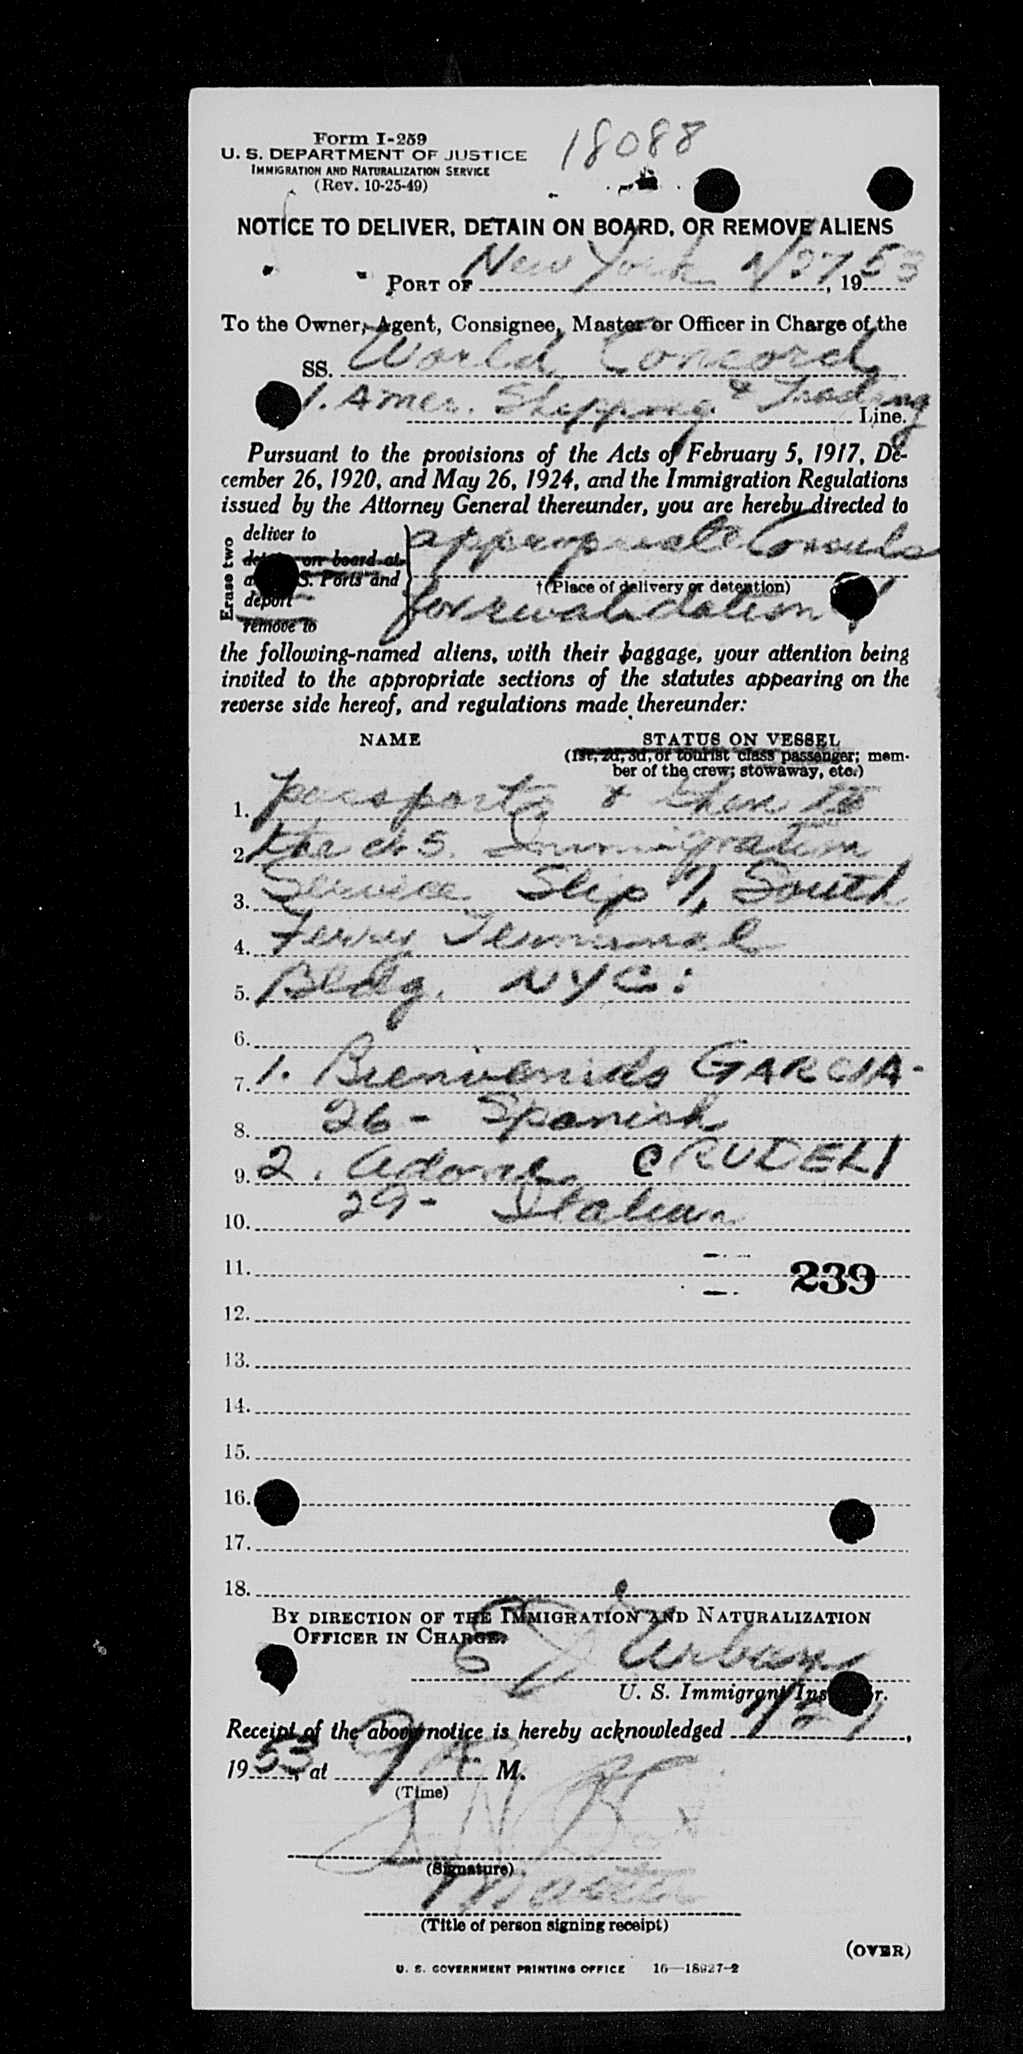 Form I-259
18088
U. S. DEPARTMENT OF JUSTICE
IMMIGRATION AND NATURALIZATION SERVICE
(Rev. 10-25-49)
NOTICE TO DELIVER, DETAIN ON BOARD, OR REMOVE ALIENS
PORT OF New York 1/27, 1953
To the Owner, Agent, Consignee, Master or Officer in Charge of the
SS. World Concord
Amer. Shipping & Trading Line.
Pursuant to the provisions of the Acts of February 5, 1917, De-
cember 26, 1920, and May 26, 1924, and the Immigration Regulations
issued by the Attorney General thereunder, you are hereby directed to
Erase two
deliver to appropriate Consuls
on board at
S. Ports and †(Place of delivery or detention)
deport for revalidation of
remove to
the following-named aliens, with their baggage, your attention being
invited to the appropriate sections of the statutes appearing on the
reverse side hereof, and regulations made thereunder:
NAME STATUS ON VESSEL
(1st, 2d, 3d, or tourist class passenger; mem-
ber of the crew; stowaway, etc.)
1. passports & then to
2. the U.S. Immigration
3. Service Slip 7, South
4. Ferry Terminal
5. Bldg. NYC:
6.
7. 1. Bienvenido GARCIA-
8. 26- Spanish
9. 2. Adone CRUDELI
10. 29- Italian
11. 239
12.
13.
14.
15.
16.
17.
18.
BY DIRECTION OF THE IMMIGRATION AND NATURALIZATION
OFFICER IN CHARGE.
E J Urban
U. S. Immigrant
Receipt of the above notice is hereby acknowledged 1/27,
1953, at 9 A M.
(Time)
(Signature)
Master
(Title of person signing receipt)
(OVER)
U. S. GOVERNMENT PRINTING OFFICE 16—18927-2